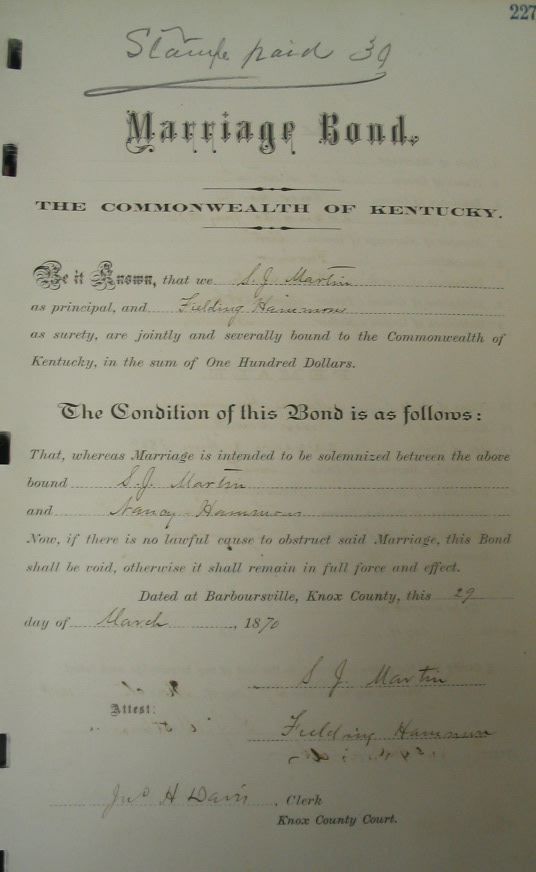 227
Stamp paid 39
Marriage Bond.
THE COMMONWEALTH OF KENTUCKY.
Be it Known, that we S. J. Martin
as principal, and Fielding Hammons
as surety, are jointly and severally bound to the Commonwealth of
Kentucky, in the sum of One Hundred Dollars.
The Condition of this Bond is as follows:
That, whereas Marriage is intended to be solemnized between the above
bound S. J. Martin
and Nancy Hammons
Now, if there is no lawful cause to obstruct said Marriage, this Bond
shall be void, otherwise it shall remain in full force and effect.
Dated at Barboursville, Knox County, this 29
day of March, 1870
S J Martin
Attest:
Fielding Hammons
Jno H Davis, Clerk
Knox County Court.